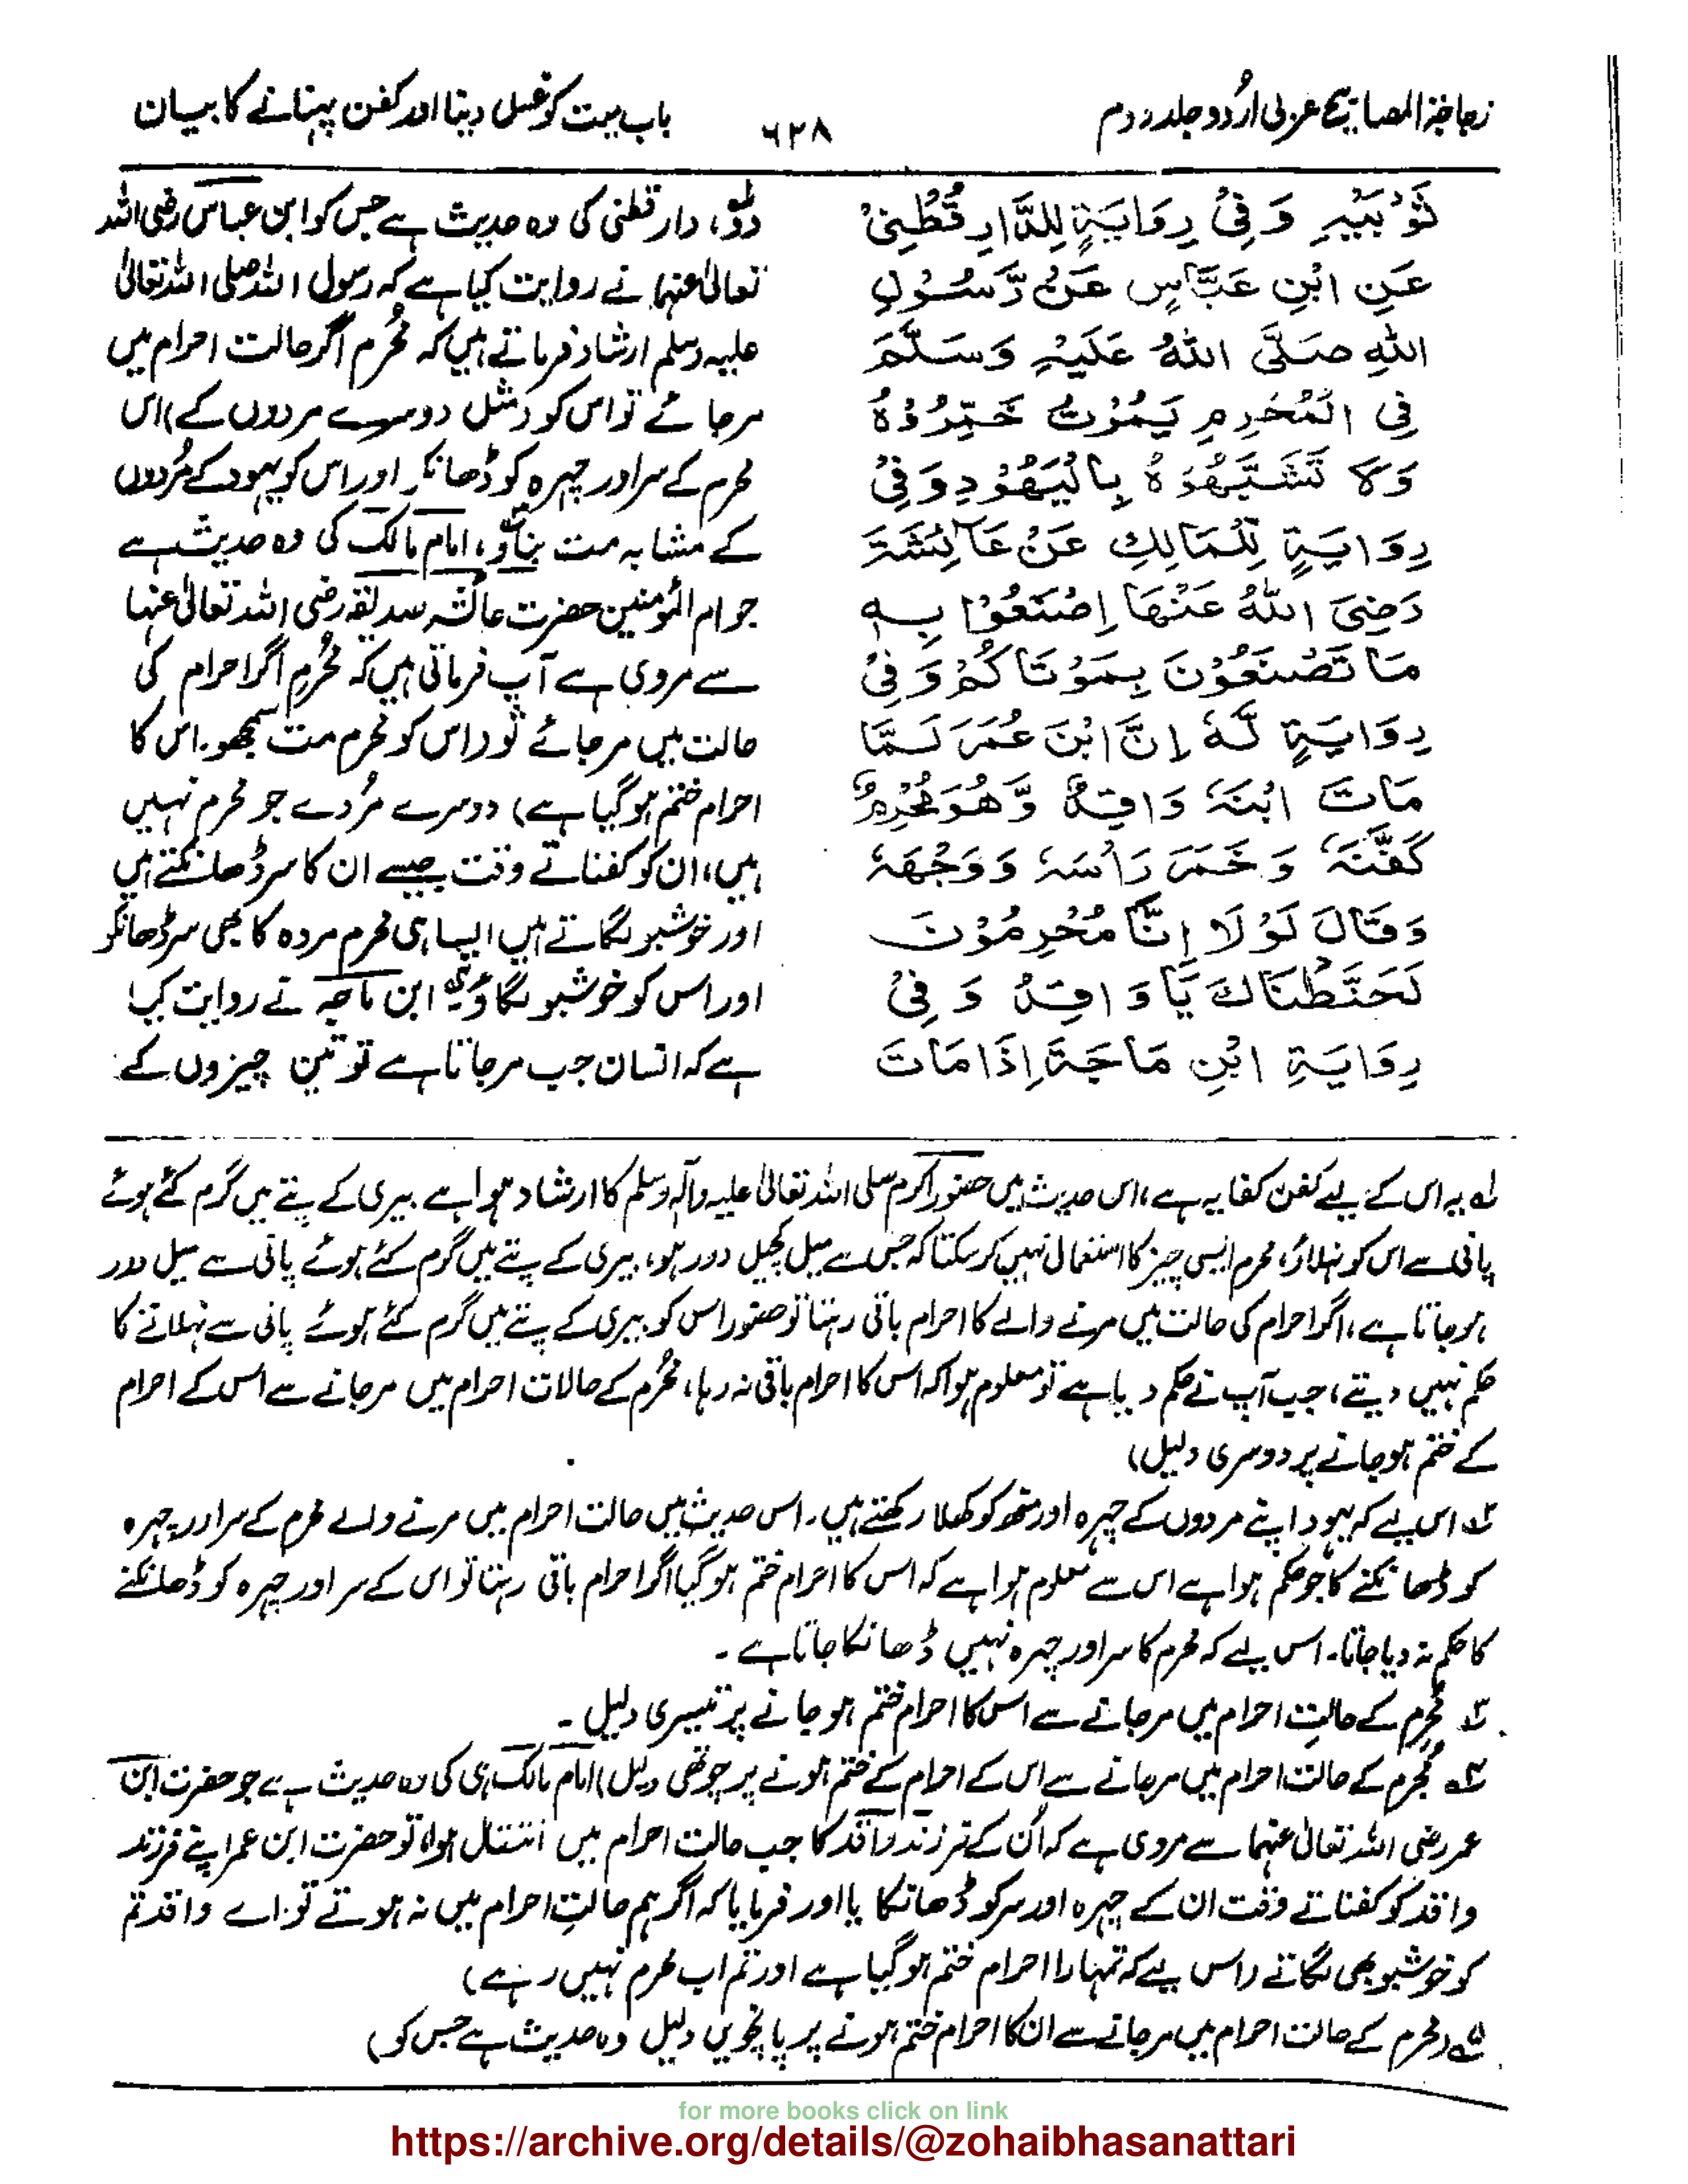 زجاجۃ المصابیح عربی اردو جلد دوم
۶۲۸
باب میت کو غسل دینا اور کفن پہنانے کا بیان
ثَوْبَيْهِ وَفِیْ رِوَايَةٍ لِلدَّارِ قُطْنِیْ
عَنِ ابْنِ عَبَّاسٍ عَنْ رَّسُوْلِ
اللّٰهِ صَلَّى اللّٰهُ عَلَيْهِ وَسَلَّمَ
فِی الْمُحْرِمِ يَمُوْتُ خَمِّرُوْهُ
وَلَا تَشَبَّهُوْهُ بِالْيَهُوْدِ وَفِیْ
رِوَايَةٍ لِّمَالِكٍ عَنْ عَآئِشَةَ
رَضِیَ اللّٰهُ عَنْهَا اِصْنَعُوْا بِهٖ
مَا تَصْنَعُوْنَ بِمَوْتَاكُمْ وَفِیْ
رِوَايَةٍ لَّهٗ اِنَّ ابْنَ عُمَرَ لَمَّا
مَاتَ ابْنَهٗ وَاقِدٌ وَّهُوَ مُحْرِمٌ
كَفَّنَهٗ وَخَمَّرَ رَأْسَهٗ وَوَجْهَهٗ
وَقَالَ لَوْلَا اِنَّا مُحْرِمُوْنَ
لَحَنَّطْنَاكَ يَا وَاقِدُ وَفِیْ
رِوَايَةِ ابْنِ مَاجَةَ اِذَا مَاتَ
دوؕ، دار قطنی کی وہ حدیث ہے جس کو ابن عباس رضی اللہ
تعالیٰ عنہما نے روایت کیا ہے کہ رسول اللہ صلی اللہ تعالیٰ
علیہ وسلم ارشاد فرماتے ہیں کہ مُحْرِم اگر حالت احرام میں
مرجائے تو اس کو (مثل دوسرے مردوں کے) اس
محرم کے سر اور چہرہ کو ڈھانکر اور اس کو یہود کے مُردوں
کے مشابہ مت بناؤ، امام مالک کی وہ حدیث ہے
جو ام المؤمنین حضرت عائشہ صدیقہ رضی اللہ تعالیٰ عنہا
سے مروی ہے آپ فرماتی ہیں کہ مُحْرِم اگر احرام کی
حالت میں مرجائے تو (اس کو محرم مت سمجھو۔ اس کا
احرام ختم ہوگیا ہے) دوسرے مُردے جو محرم نہیں
ہیں، ان کو کفناتے وقت جیسے ان کا سر ڈھانکتے ہیں
اور خوشبو لگاتے ہیں ایسا ہی محرم مردہ کا بھی سر ڈھانکو
اور اس کو خوشبو لگاؤ ابن ماجہ نے روایت کیا
ہے کہ انسان جب مرجاتا ہے تو تین چیزوں کے
لہ یہ اس کے لیے کفن کفایہ ہے، اس حدیث میں حضور اکرم صلی اللہ تعالیٰ علیہ وآلہ وسلم کا ارشاد ہوا ہے بیری کے پتے میں گرم کئے ہوئے
پانی سے اس کو نہلاؤ، محرم ایسی چیز کا استعمال نہیں کرسکتا کہ جس سے میل کچیل دور ہو، بیری کے پتے میں گرم کئے ہوئے پانی سے میل دور
ہوجاتا ہے، اگر احرام کی حالت میں مرنے والے کا احرام باقی رہتا تو حضور اس کو بیری کے پتے میں گرم کئے ہوئے پانی سے نہلانے کا
حکم نہیں دیتے، جب آپ نے حکم دیا ہے تو معلوم ہوا کہ اس کا احرام باقی نہ رہا، مُحْرِم کے حالات احرام میں مرجانے سے اس کے احرام
کے ختم ہوجانے پر دوسری دلیل)
۲ہ اس لیے کہ یہود اپنے مردوں کے چہرہ اور منھ کو کھلا رکھتے ہیں۔ اس حدیث میں حالت احرام میں مرنے والے محرم کے سر اور چہرہ
کو ڈھانکنے کا جو حکم ہوا ہے اس سے معلوم ہوا ہے کہ اس کا احرام ختم ہوگیا اگر احرام باقی رہتا تو اس کے سر اور چہرہ کو ڈھانکنے
کا حکم نہ دیا جاتا۔ اس لیے کہ محرم کا سر اور چہرہ نہیں ڈھانکا جاتا ہے۔
۳ہ مُحْرِم کے حالتِ احرام میں مرجانے سے اس کا احرام ختم ہوجانے پر تیسری دلیل۔
۴ہ مُحْرِم کے حالت احرام میں مرجانے سے اس کے احرام کے ختم ہونے پر چوتھی دلیل) امام مالک ہی کی وہ حدیث ہے جو حضرت ابن
عمر رضی اللہ تعالیٰ عنہما سے مروی ہے کہ اُن کے فرزند واقد کا جب حالت احرام میں انتقال ہوا تو حضرت ابن عمر اپنے فرزند
واقد کو کفناتے وقت ان کے چہرہ اور سر کو ڈھانکا یا اور فرمایا کہ اگر ہم حالتِ احرام میں نہ ہوتے تو اے واقد تم
کو خوشبو بھی لگاتے (اس لیے کہ تمہارا احرام ختم ہوگیا ہے اور تم اب محرم نہیں رہے)
۵ہ (محرم کے حالت احرام میں مرجانے سے ان کا احرام ختم ہونے پر پانچویں دلیل وہ حدیث ہے جس کو)
for more books click on link
https://archive.org/details/@zohaibhasanattari